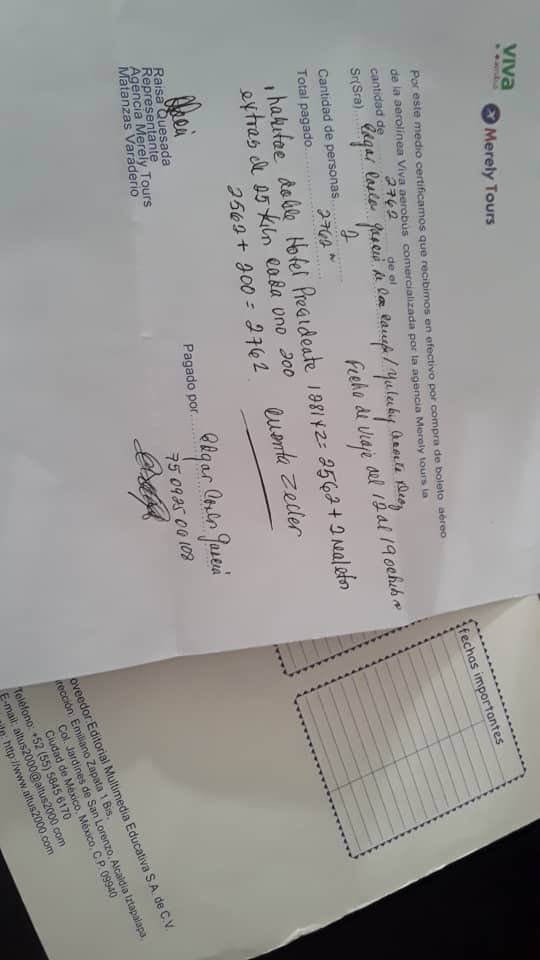 viva
aerobus
Merely Tours
Por este medio certificamos que recibimos en efectivo por compra de boleto aéreo
de la aerolínea Viva aerobús comercializada por la agencia Merely tours la
cantidad de 2762 de el
Sr(Sra) Edgar Carlos Garcia de la Campa/
Cantidad de personas 2 Fecha de viaje del 12 al 19 octubre
Total pagado 2762
1 habitac doble Hotel Presidente 1281x2=2562+2 maletas
extras de 25 kln cada uno 200 Cuenta Zeller
2562+200=2762
Raisa Quesada
Representante
Agencia Merely Tours
Matanzas Varaderio
Pagado por Edgar Carlos Garcia
75092504108
fechas importantes
oveedor:Editorial Multimedia Educativa S.A. de C.V.
rección: Emiliano Zapata 1 Bis,
Col. Jardines de San Lorenzo, Alcaldía Iztapalapa,
Ciudad de México, México, C.P. 09940
Teléfono: +52 (55) 5845 6170
E-mail: altus2000@altus2000.com
site: http://www.altus2000.com